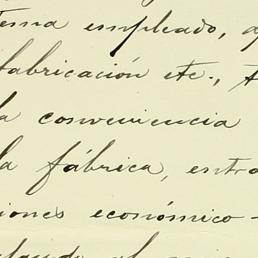 tema empleado, q
fabricación etc., t
a conveniencia
la fábrica, entra
iones económico-